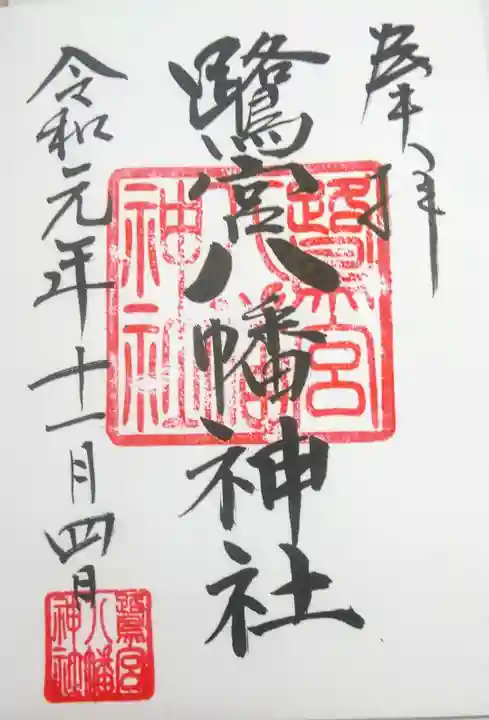 奉拝
鷺宮八幡神社
令和元年十一月四日
鷺宮
八幡
神社
鷺宮
八幡
神社